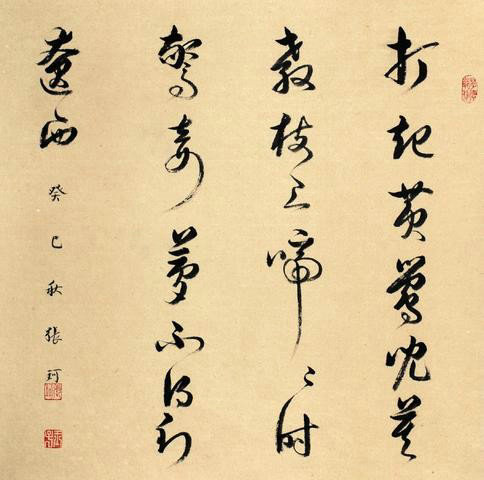 打起黃鶯兒莫
教枝上啼〻時
驚妾夢不得到
遼西
癸巳秋張珂